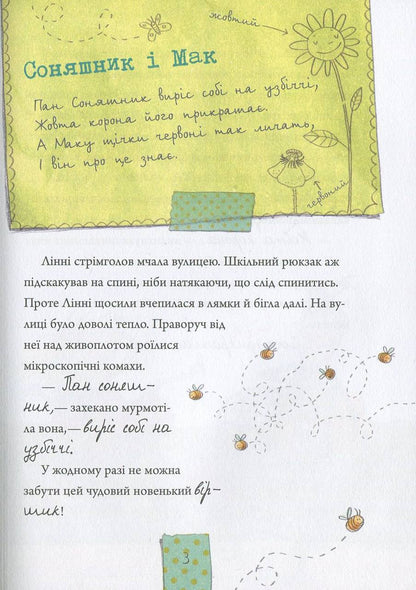 жовтий
Соняшник і Мак
Пан Соняшник виріс собі на узбіччі,
Жовта корона його прикрашає.
А Маку щічки червоні так личать,
І він про це знає.
червоний
Лінні стрімголов мчала вулицею. Шкільний рюкзак аж
підскакував на спині, ніби натякаючи, що слід спинитись.
Проте Лінні щосили вчепилася в лямки й бігла далі. На ву-
лиці було доволі тепло. Праворуч від
неї над живоплотом роїлися
мікроскопічні комахи.
— Пан соняш-
ник, — захекано мурмоті-
ла вона, — виріс собі на
узбіччі.
У жодному разі не можна
забути цей чудовий новенький вір-
шик!
3